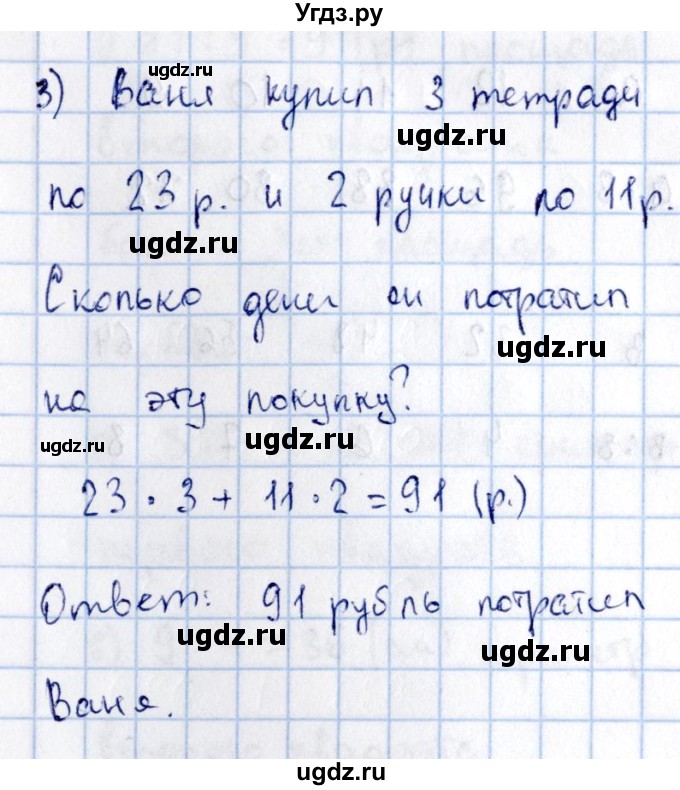 Угдз.ру
ugdz.ru
3) Ваня купил 3 тетради
ugdz.ru
по 23 р. и 2 ручки по 11 р.
ugdz.ru
Сколько денег он потратил
ugdz.ru
на эту покупку?
ugdz.ru ugdz.ru
23 · 3 + 11 · 2 = 91 (р.)
Ответ: 91 рубль потратил
ugdz.ru ugdz.ru
Ваня.
ugdz.ru